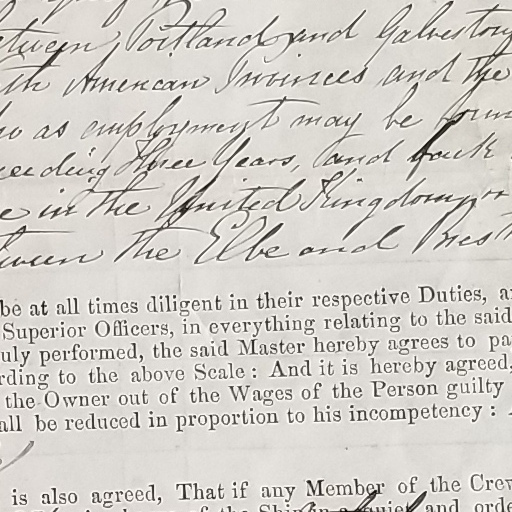 between Portland and Galveston
th American Provinces and the
so as employment may be foun
eeding Three Years, and back
e in the United Kingdom, or
tween the Elbe and Brest
be at all times diligent in their respective Duties, a
Superior Officers, in everything relating to the said
uly performed, the said Master hereby agrees to pa
rding to the above Scale: And it is hereby agreed,
the Owner out of the Wages of the Person guilty
all be reduced in proportion to his incompetency:
is also agreed, That if any Member of the Crew
of the Ship and orde